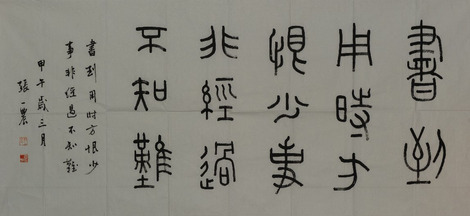 書到
用時方
恨少事
非經過
不知難
書到用时方恨少
事非經過不知難
甲午歲三月
張一農